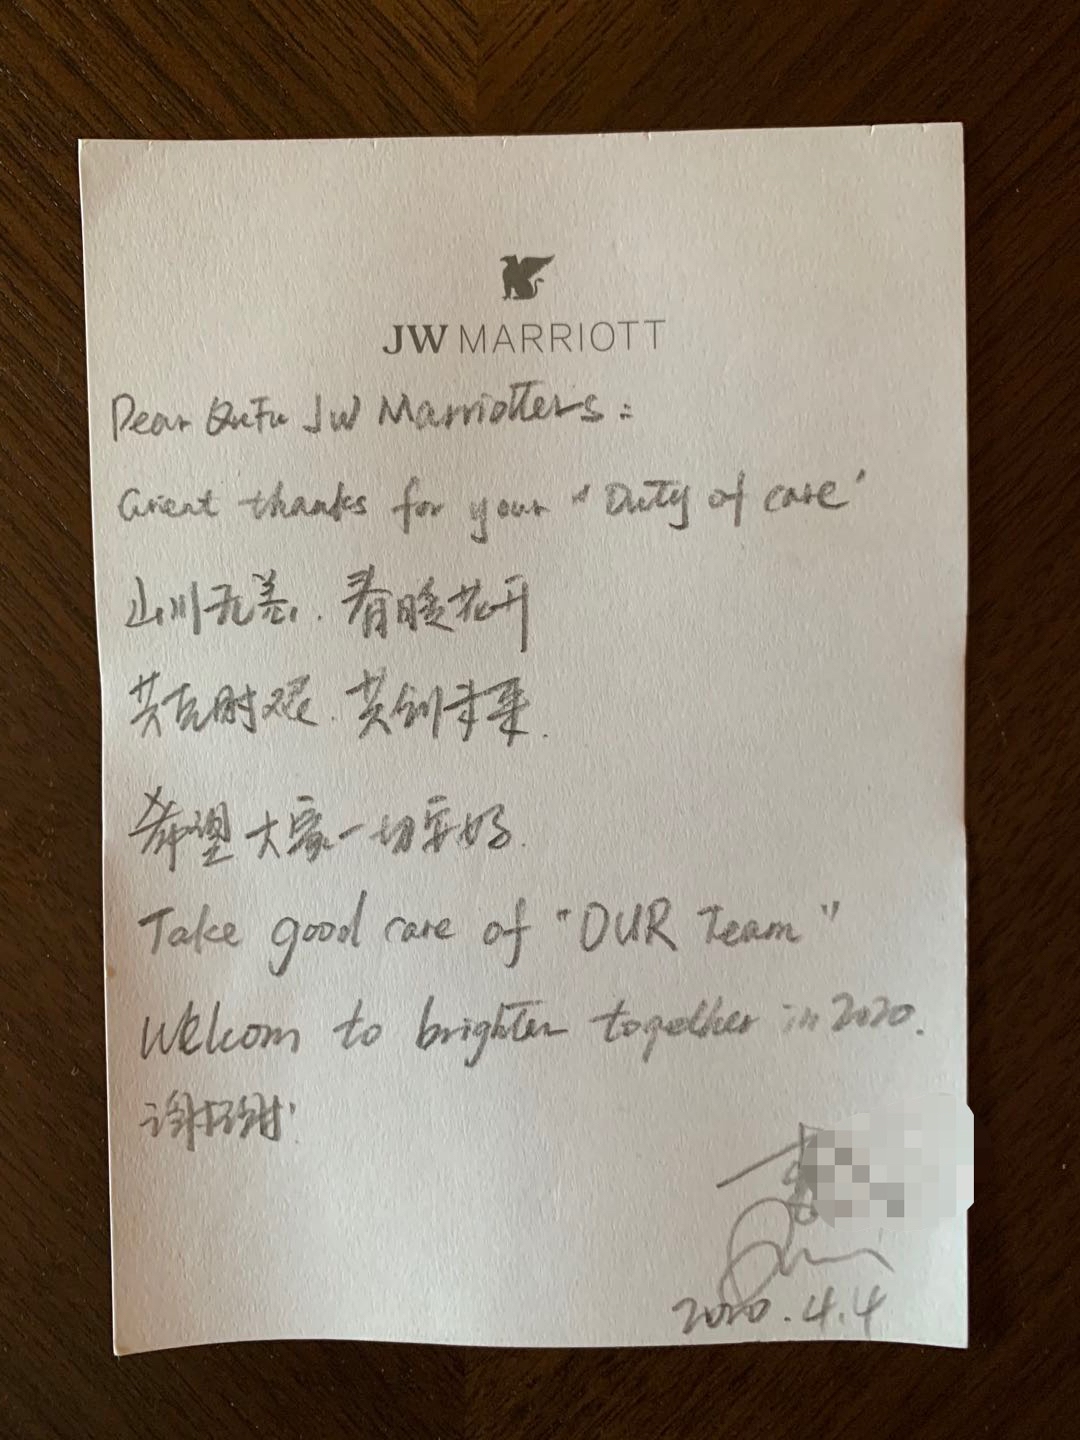 JW MARRIOTT
Dear QuFu JW Marriotters:
Great thanks for your "Duty of care"
山川无恙. 春暖花开
共克时艰. 共创未来.
希望大家一切安好.
Take good care of "OUR Team"
Welcom to brighter together in 2020.
谢谢!
2020.4.4